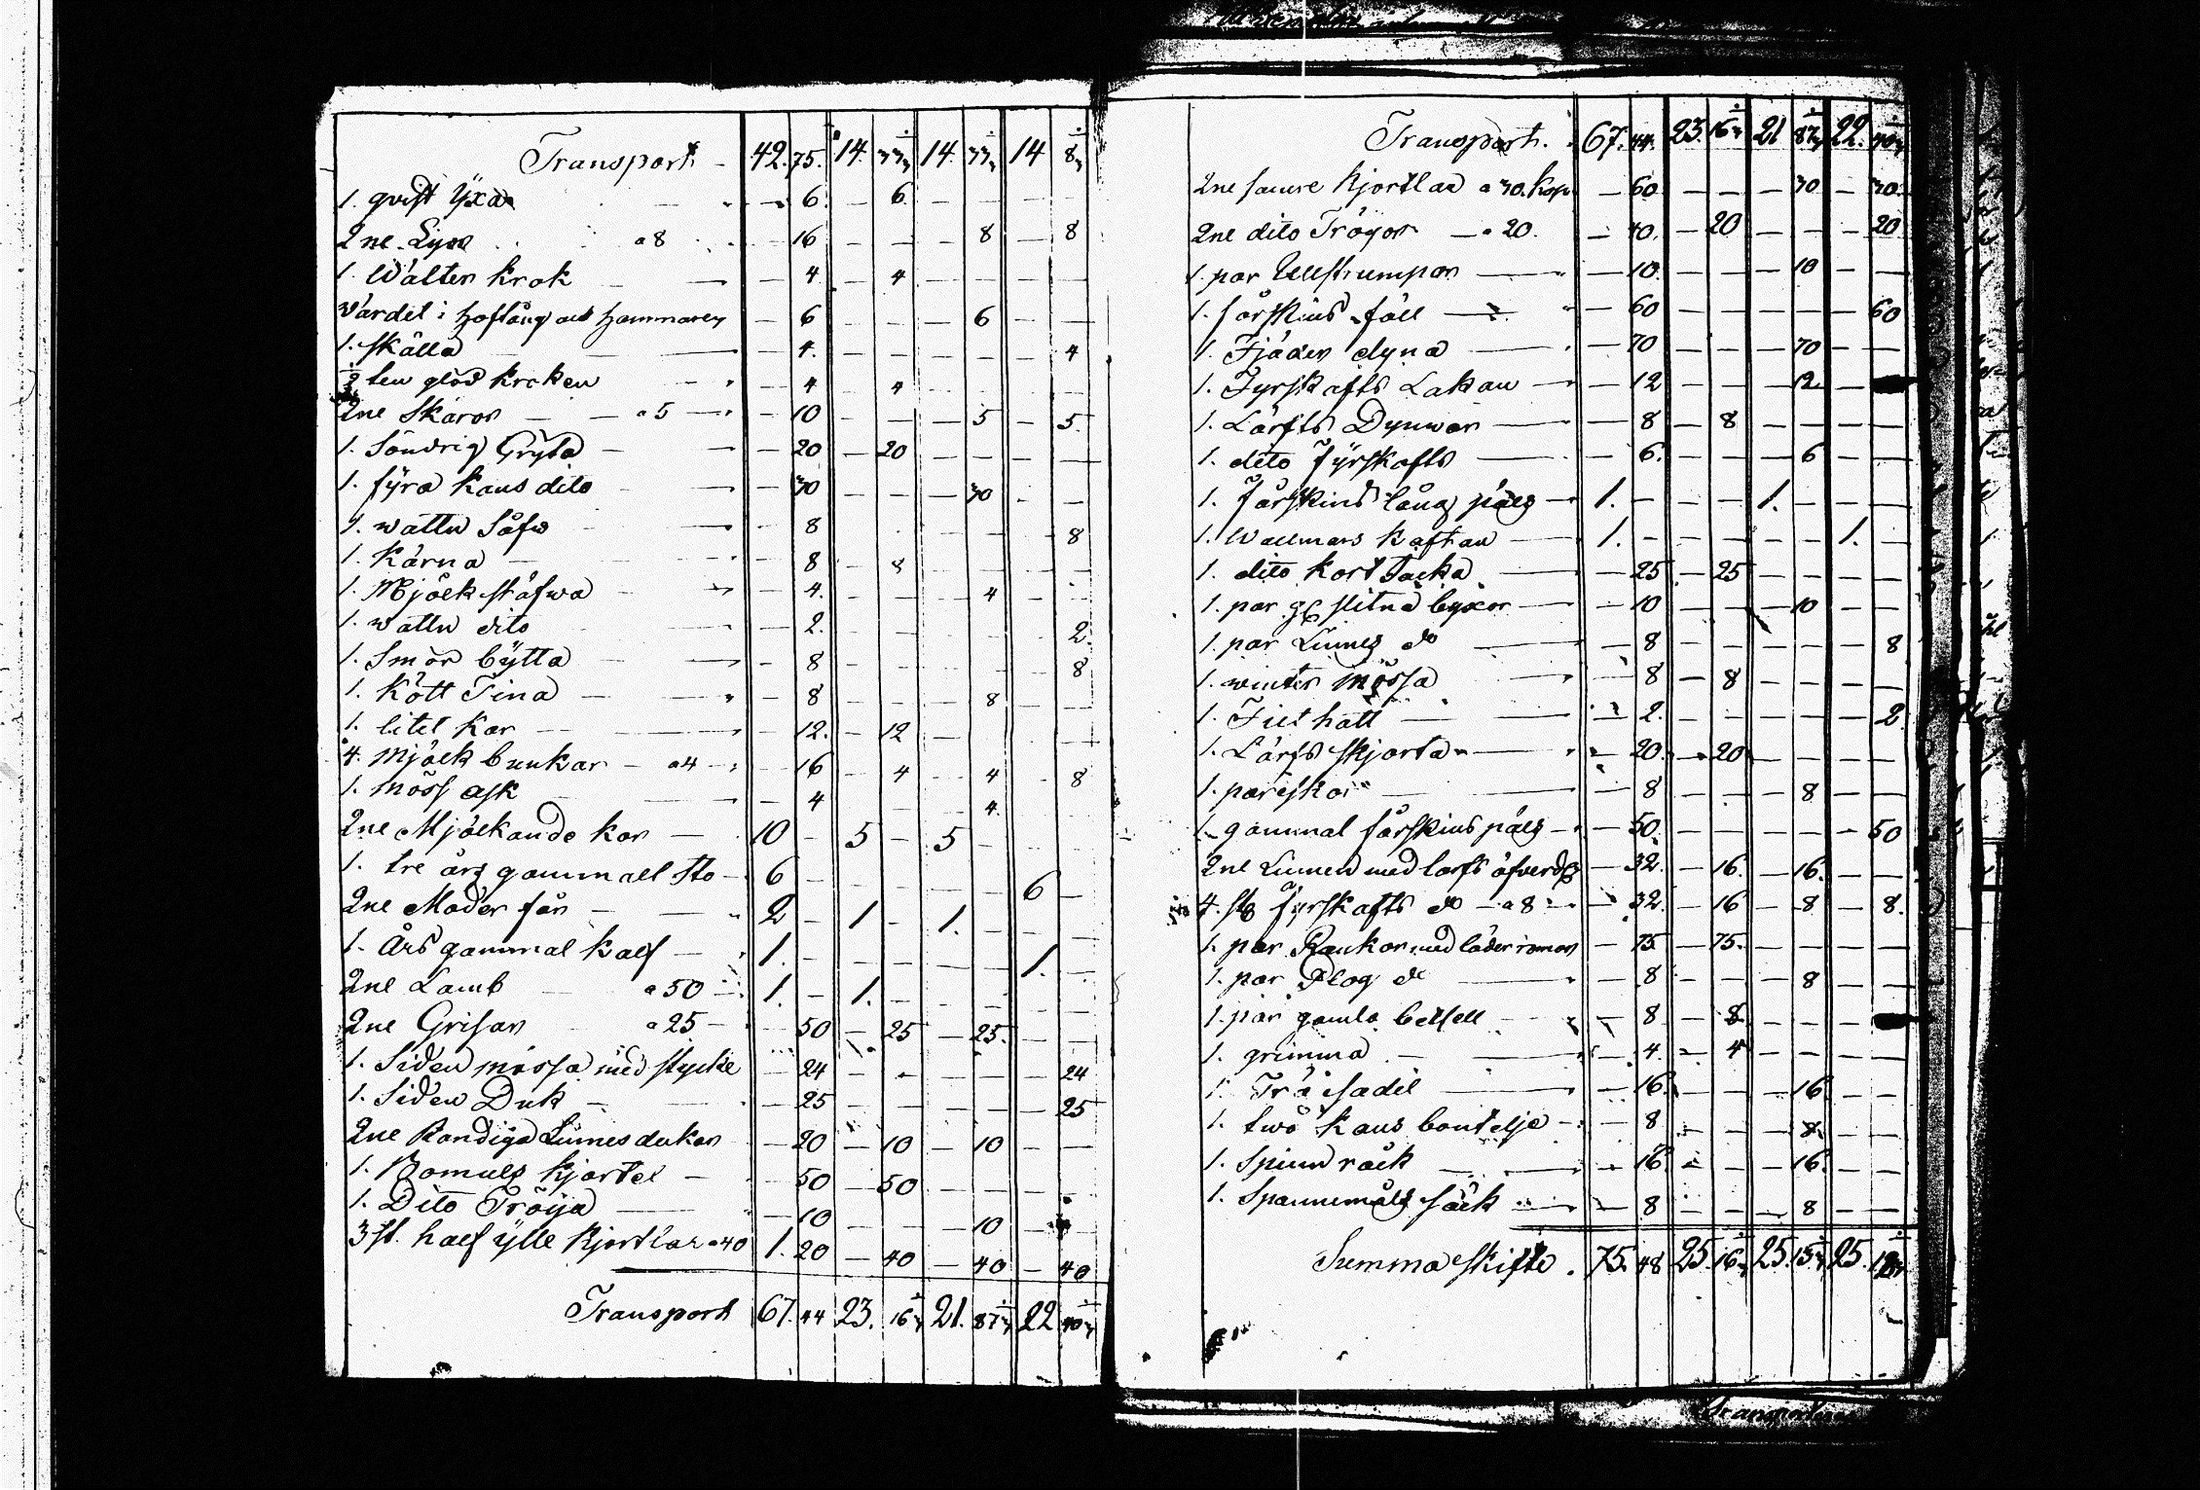 Transport - 42. 75. 14. 33⅓ 14. 33⅓ 14 8⅓
1. qvist Yxa - - 6. - 6. - - - -
2ne Lyor a 8 - 16 - - - 8 - 8
1. Wälter krok - 4 - 4 - - - -
Värdet i Hoftång och Hammaren - 6 - - - 6 - -
1. Skälla - 4. - - - - - 4
½ ten glöd kroken - 4 - 4 - - - -
2ne Skäror - a 5 - - 10 - - - 5 - 5.
1. Söndrig Gryta - - 20 - 20 - - - -
1. fyra kans dito - - 30 - - - 30 - -
1. wattu Såfw - - 8 - - - - - 8
1. Kärna - - 8 - 8 - - - -
1. Mjölk stäfwa - - 4. - - - 4 - -
1. wattu dito - 2. - - - - - 2.
1. Smör bytta - - 8 - - - - - 8
1. Kött Tina - - 8 - - - 8 - -
1. litet Kar - - 12. - 12 - - - -
4. Mjölk bunkar - a 4 - - 16 - 4 - 4 - 8
1. möss ask - - 4 - - - 4. - -
2ne Mjölkande kor - 10 - 5 - 5 - - -
1. tre års gammalt Sto - 6 - - - - - 6 -
2ne Moder får - 2 - 1 - 1. - - -
1. Års gammal kalf - 1. - - - - - 1. -
2ne Lamb a 50 - 1. - 1. - - - - -
2ne Grisar a 25 - - 50 - 25 - 25. - -
1. Siden mössa med stycke - 24 - - - - - 24
1. Siden Duk - - 25 - - - - - 25
2ne Randiga Linnes dukar - 20 - 10 - 10 - -
1. Bomuls kjortel - - 50 - 50 - - - -
1. Dito Tröija - - 10 - - - 10 -
3 st. half ylle kjortlar a 40 1. 20 - 40 - 40 - 40
Transport 67. 44 23. 16⅓ 21. 87⅓ 22 40⅓
Transport. 67. 44. 23. 16⅓ 21 87⅓ 22. 40⅓
2ne sämre kjortlar a 30. kop - 60 - - - 30 - 30.
2ne dito Tröyor - a 20. - 40. - 20 - - - 20
1. par Ullstrumpor - - 10. - - - 10 - -
1. fårskins fäll - - 60 - - - - - 60
1. Fjäder dyna - - 70 - - - 70 - -
1. Fyrskafts Lakan - - 12 - - - 12 -
1. Lärfts Dynwar - - 8 - 8 - - - -
1. dito Fyrskafts - - 6. - - - 6 - -
1. Fårskins lång päls - 1. - - - 1. - - -
1. Wallmars kaftan - 1. - - - - - 1. -
1. dito kort Jacka - - 25 - 25 - - - -
1. par slitna byxor - - 10 - - - 10 - -
1. par Linnes do - - 8 - - - - - 8
1. winter mössa - - 8 - 8 - - - -
1. Filt hatt - - 2. - - - - - 2
1. Lärfts skjorta - - 20 - 20 - - - -
1. par skor - - 8 - - - 8 - -
1. gammal fårskins päls - - 50. - - - - - 50
2ne Linnen med larfts öfverd - 32. - 16. - 16. - -
4. st fyrskafts do - a 8 - - 32. - 16 - 8 - 8.
1. par Rankor med läder remar - 75 - 75. - - - -
1. par Plog do - - 8 - - - 8 - -
1. par gamla betsell - - 8 - 8 - - -
1. grimma - - 4. - 4 - - - -
1. Trä sadel - - 16. - - - 16. - -
1. två kans boutelje - - 8 - - - 8 - -
1. Spinn råck - - 16. - - - 16. - -
1. Spannemåls säck - - 8 - - - 8 - -
Summa skifte. 75. 48 25. 16⅓ 25. 15⅓ 25.